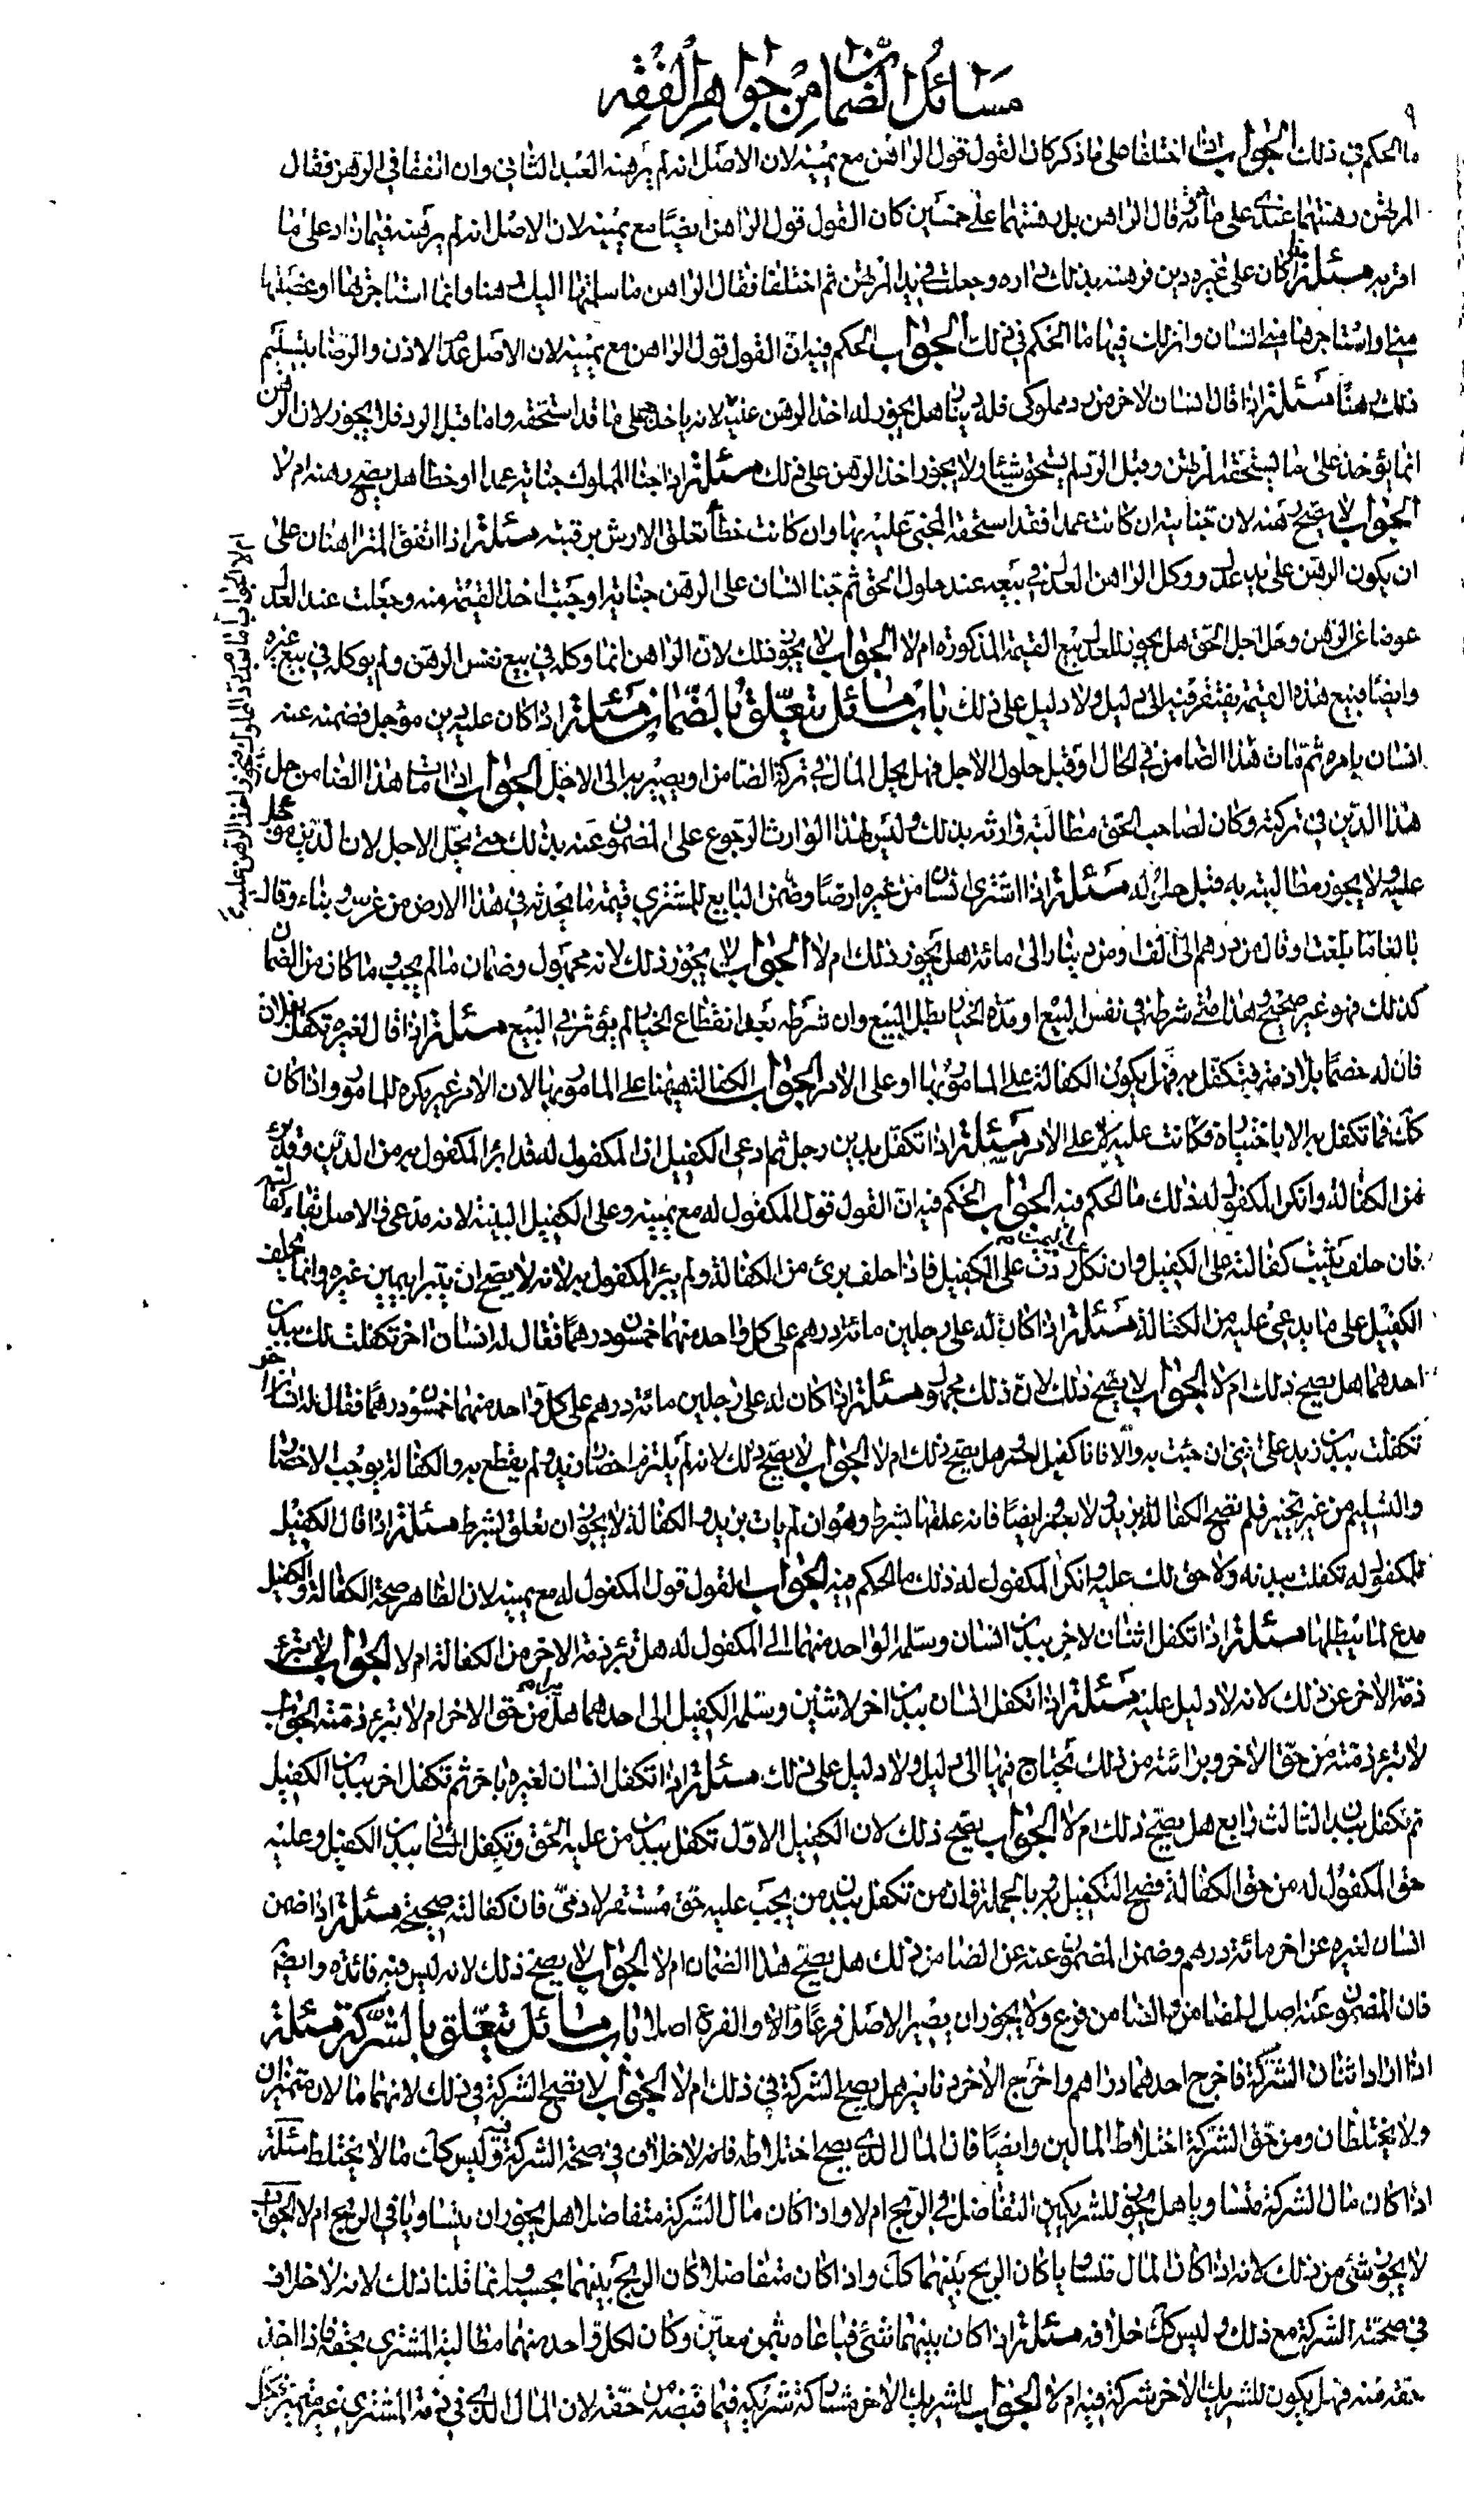 مسائل الضمان من جواهر الفقه
٩
ما الحكم في ذلك الجواب اذا اختلفا على ما ذكر كان القول قول الراهن مع يمينه لان الاصل انه لم يرهنه العبد الثاني وان اتفقا في الرهن فقال
المرتهن رهنتهما عندى على مائة وقال الراهن بل رهنتهما على خمسين كان القول قول الراهن ايضا مع يمينه لان الاصل انه لم يرهنه فيما زاد على ما
اقر به مسئلة اذا كان على غيره دين فرهنه بذلك داره وجعلت في يد المرتهن ثم اختلفا فقال الراهن ما سلمتها اليك رهنا وانما استاجرتها او غصبتها
منى او استاجرها منى انسان وانزلك فيها ما الحكم في ذلك الجواب الحكم فيه ان القول قول الراهن مع يمينه لان الاصل عدم الاذن والرضا بتسليم
ذلك رهنا مسئلة اذا قال انسان لاخر من رد مملوكى فله دينار هل يجوز له اخذ الرهن عليه لانه ياخذ على ما قد استحقه واما قبل الرد فلا يجوز لان الرهن
انما يؤخذ على ما يستحقه المرتهن وقبل الرد لم يستحق شيئا ولا يجوز اخذ الرهن على ذلك مسئلة اذا جنا المملوك جناية عمدا او خطا هل يصح رهنه ام لا
الجواب لا يصح رهنه لان جنايته ان كانت عمدا فقد استحقه المجنى عليه بها وان كانت خطأ تعلق الارش برقبته مسئلة اذا اتفق المتراهنان على
ان يكون الرهن على يد عدل ووكل الراهن العدل في بيعه عند حلول الحق ثم جنا انسان على الرهن جناية اوجبت اخذ القيمة منه وجعلت عند العدل
عوضا عن الرهن وحل اجل الحق هل يجوز للعدل بيع القيمة المذكورة ام لا الجواب لا يجوز ذلك لان الراهن انما وكله في بيع نفس الرهن ولم يوكله في بيع غيره
وايضا فبيع هذه القيمة يفتقر فيه الى دليل ولا دليل على ذلك باب مسائل تتعلق بالضمان مسئلة اذا كان عليه دين مؤجل فضمنه عنه
انسان بامره ثم مات هذا الضامن في الحال وقبل حلول الاجل فهل يحل المال في تركة الضامن او يصير به الى الاجل الجواب اذا مات هذا الضامن حل
هذا الدين في تركته وكان لصاحب الحق مطالبة وارثه بذلك وليس لهذا الوارث الرجوع على المضمون عنه بذلك حتى يحل الاجل لان الدين مؤجل
عليه ولا يجوز مطالبته به قبل حلوله مسئلة اذا اشترى انسان من غيره ارضا وضمن البايع للمشترى قيمة ما يحدثه في هذا الارض من غرس وبناء وقال
بالغا ما بلغت او قال من درهم الى الف او من دينار الى مائة هل يجوز ذلك ام لا الجواب لا يجوز ذلك لانه مجهول وضمان ما لم يجب وما كان من الضمان
كذلك فهو غير صحيح وهذا متى شرطه في نفس البيع او مدة الخيار بطل البيع وان شرطه بعد انقطاع الخيار لم يؤثر في البيع مسئلة اذا قال لغيره تكفل بفلان
فان له خصما يلازمه فتكفل به فهل يكون الكفالة على المامور بها او على الامر الجواب الكفالة هيهنا على المامور بها لان الامر غير مكره للمامور واذا كان
كك فما تكفل به الا باختياره فكانت عليه لا على الامر مسئلة اذا تكفل ببدن رجل ثم ادعى الكفيل ان المكفول له قد ابرا المكفول به من الدين وقد برئ
من الكفالة وانكر المكفول له ذلك ما الحكم فيه الجواب الحكم فيه ان القول قول المكفول له مع يمينه وعلى الكفيل البينة لانه مدعى والاصل بقاء كفالته
فان حلف يثبت كفالته على الكفيل وان نكل ردت اليمين على الكفيل فاذا حلف برئ من الكفالة ولم يبرا المكفول به لانه لا يصح ان يتبرا بيمين غيره وانما يحلف
الكفيل على ما يدعى عليه من الكفالة مسئلة اذا كان له على رجلين مائة درهم على كل واحد منهما خمسون درهما فقال له انسان اخر تكفلت لك ببدن
احدهما هل يصح ذلك ام لا الجواب لا يصح ذلك لان ذلك مجهول مسئلة اذا كان له على رجلين مائة درهم على كل واحد منهما خمسون درهما فقال له انسان اخر
تكفلت ببدن زيد على انى ان جئت به والا فانا كفيل بعمرو هل يصح ذلك ام لا الجواب لا يصح ذلك لانه لم يلتزم احضار زيد ولم يقطع به والكفالة توجب الاحضار
والتسليم من غير تخيير فلم تصح الكفالة بزيد ولا بعمرو ايضا فانه علقها بشرط وهو ان لم يات بزيد والكفالة لا يجوز ان تعلق بشرط مسئلة اذا قال الكفيل
للمكفول له تكفلت ببدنه ولا حق لك عليه وانكر المكفول له ذلك ما الحكم فيه الجواب القول قول المكفول له مع يمينه لان الظاهر صحة الكفالة والكفيل
مدع لما يبطلها مسئلة اذا تكفل اثنان لاخر ببدن انسان وسلمه الواحد منهما الى المكفول له هل تبرء ذمة الاخر من الكفالة ام لا الجواب لا تبرء
ذمة الاخر عن ذلك لانه لا دليل عليه مسئلة اذا تكفل انسان ببدن اخر لاثنين وسلمه الكفيل الى احدهما هل يبرء من حق الاخر ام لا تبرء ذمته الجواب
لا تبرء ذمته من حق الاخر وبرائته من ذلك تحتاج فيها الى دليل ولا دليل على ذلك مسئلة اذا تكفل انسان لغيره باخر ثم تكفل اخر ببدن الكفيل
ثم تكفل ببدن الثالث رابع هل يصح ذلك ام لا الجواب يصح ذلك لان الكفيل الاول تكفل ببدن من عليه الحق وتكفل الثانى ببدن الكفيل وعليه
حق المكفول له من حق الكفالة فصح التكفيل به وبالجملة فان من تكفل ببدن من يجب عليه حق مستقر لادمى فان كفالته صحيحة مسئلة اذا ضمن
انسان لغيره عن اخر مائة درهم وضمن المضمون عنه عن الضامن ذلك هل يصح هذا الضمان ام لا الجواب لا يصح ذلك لانه ليس فيه فائدة وايضا
فان المضمون عنه اصل للضامن والضامن فرع ولا يجوز ان يصير الاصل فرعا والفرع اصلا باب مسائل تتعلق بالشركة مسئلة
اذا اراد اثنان الشركة فاخرج احدهما دراهم واخرج الاخر دنانير هل يصح الشركة في ذلك ام لا الجواب لا تصح الشركة في ذلك لانهما مالان متميزان
ولا يختلطان ومن حق الشركة اختلاط المالين وايضا فان المال الذى يصح اختلاطه فانه لا خلاف في صحة الشركة فيه وليس كك ما لا يختلط مسئلة
اذا كان مال الشركة متساويا هل يجوز للشريكين التفاضل في الربح ام لا واذا كان مال الشركة متفاضلا هل يجوز ان يتساويا في الربح ام لا الجواب
لا يجوز شئ من ذلك لانه اذا كان المال متساويا كان الربح بينهما كك واذا كان متفاضلا كان الربح بينهما بحسبه وانما قلنا ذلك لانه لا خلاف
في صحة الشركة مع ذلك وليس كك خلافه مسئلة اذا كان بينهما شئ فباعاه بثمن معين وكان لكل واحد منهما مطالبة المشترى بحقه فاذا اخذ
حقه منه فهل يكون للشريك الاخر شركة فيه ام لا الجواب للشريك الاخر مشاركة شريكه فيما قبضه من حقه لان المال الذى في ذمة المشترى غير متميز
ام لا الجواب اما بعد رد المملوك فيجوز اخذ الرهن عليه